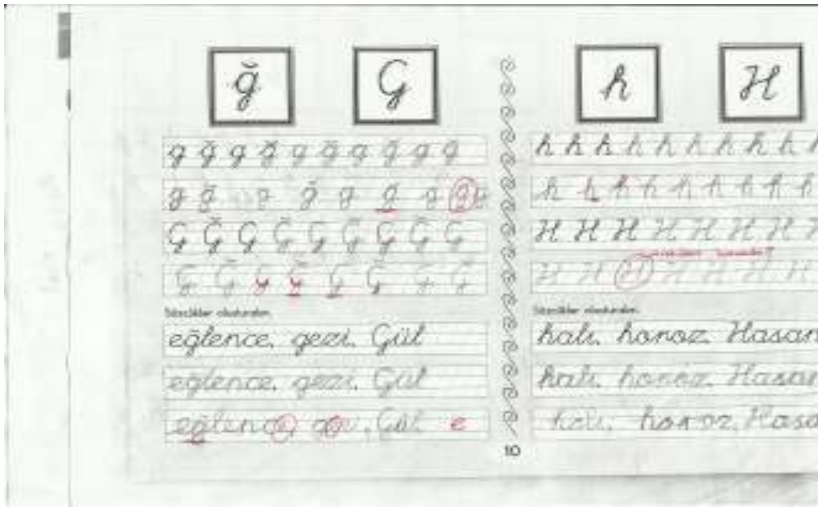 ğ G
g ğ g ğ g ğ g ğ g ğ
g ğ g ğ g g g g g
G Ğ G Ğ G Ğ G Ğ G G
G Ğ y y G G G Ğ
Sözcükler oluşturalım.
eğlence, gezi, Gül
eğlence, gezi, Gül
eğlence, gezi, Gül e
10
h H
h h h h h h h h h h
h h h h h h h h h
H H H H H H H H
H H H H H H H
Sözcükler oluşturalım.
halı, horoz, Hasan
halı, horoz, Hasan
halı, horoz, Hasa